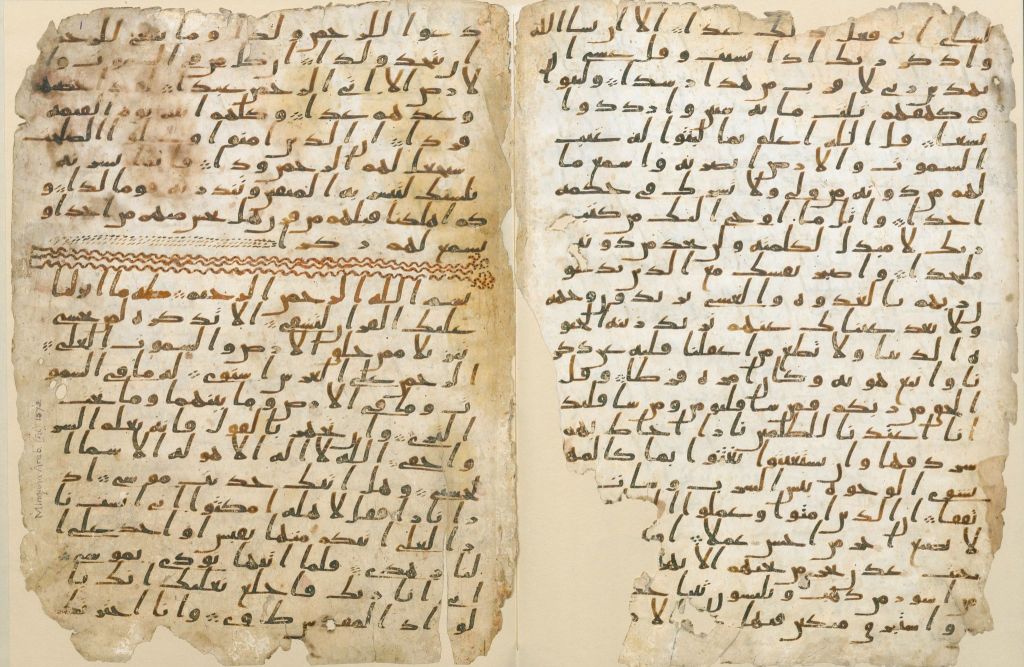 لشاي اني فعل ذلك غدا الا ان يشا الله
واذكر ربك اذا نسيت وقل عسى ان
يهدين ربي لاقرب من هذا رشدا ولبثوا
في كهفهم ثلث مايه سنين وازددوا
تسعا قل الله اعلم بما لبثوا له غيب
السموت والارض ابصر به واسمع ما
لهم من دونه من ولي ولا يشرك في حكمه
احدا واتل ما اوحي اليك من كتب
ربك لا مبدل لكلمته ولن تجد من دونه
ملتحدا واصبر نفسك مع الذين يدعو
ن ربهم بالغدوه والعشي يريدون وجهه
ولا تعد عينك عنهم تريد زينه الحيو
ه الدنيا ولا تطع من اغفلنا قلبه عن ذكر
نا واتبع هويه وكان امره فرطا وقل
الحق من ربكم فمن شا فليومن ومن شا فليكفر
انا اعتدنا للظلمين نارا احاط بهم
سردقها وان يستغيثوا يغثوا بما كالمهل
يشوي الوجوه بئس الشرب وسات
تفقا ان الذين امنوا وعملوا ا
لا نضيع اجر من احسن عملا او
جنت عدن تجري من تحتهم الانهر
من اسور من ذهب ويلبسون ثيابا خضر
واستبرق متكين فيها الار
دعوا للرحمن ولدا وما ينبغي للرحمن
ان يتخذ ولدا ان كل من في السموت وا
لارض الا اتي الرحمن عبدا لقد احصيهم
وعدهم عدا وكلهم اتيه يوم القيمه
فردا ان الذين امنوا وعملوا الصلحت
سيجعل لهم الرحمن ودا فانما يسرنه
بلسنك لتبشر به المتقين وتنذر به قوما لدا و
كم اهلكنا قبلهم من قرن هل تحس منهم من احد او
تسمع لهم ركزا
بسم الله الرحمن الرحيم طه ما انزلنا
عليك القران لتشقى الا تذكره لمن يخشى
تنزيلا ممن خلق الارض والسموت العلى
الرحمن على العرش استوى له ما في السمو
ت وما في الارض وما بينهما وما تحت
الثرى وان تجهر بالقول فانه يعلم السر
واخفى الله لا اله الا هو له الاسما ا
لحسنى وهل اتيك حديث موسى اذ
را نارا فقل لاهله امكثوا اني انست نا
را لعلي اتيكم منها بقبس او اجد على ا
لنار هدى فلما اتيها نودي يموسى
اني انا ربك فاخلع نعليك انك با
لواد المقدس طوى وانا اخترتك
Mingana Arab Isl. 1572